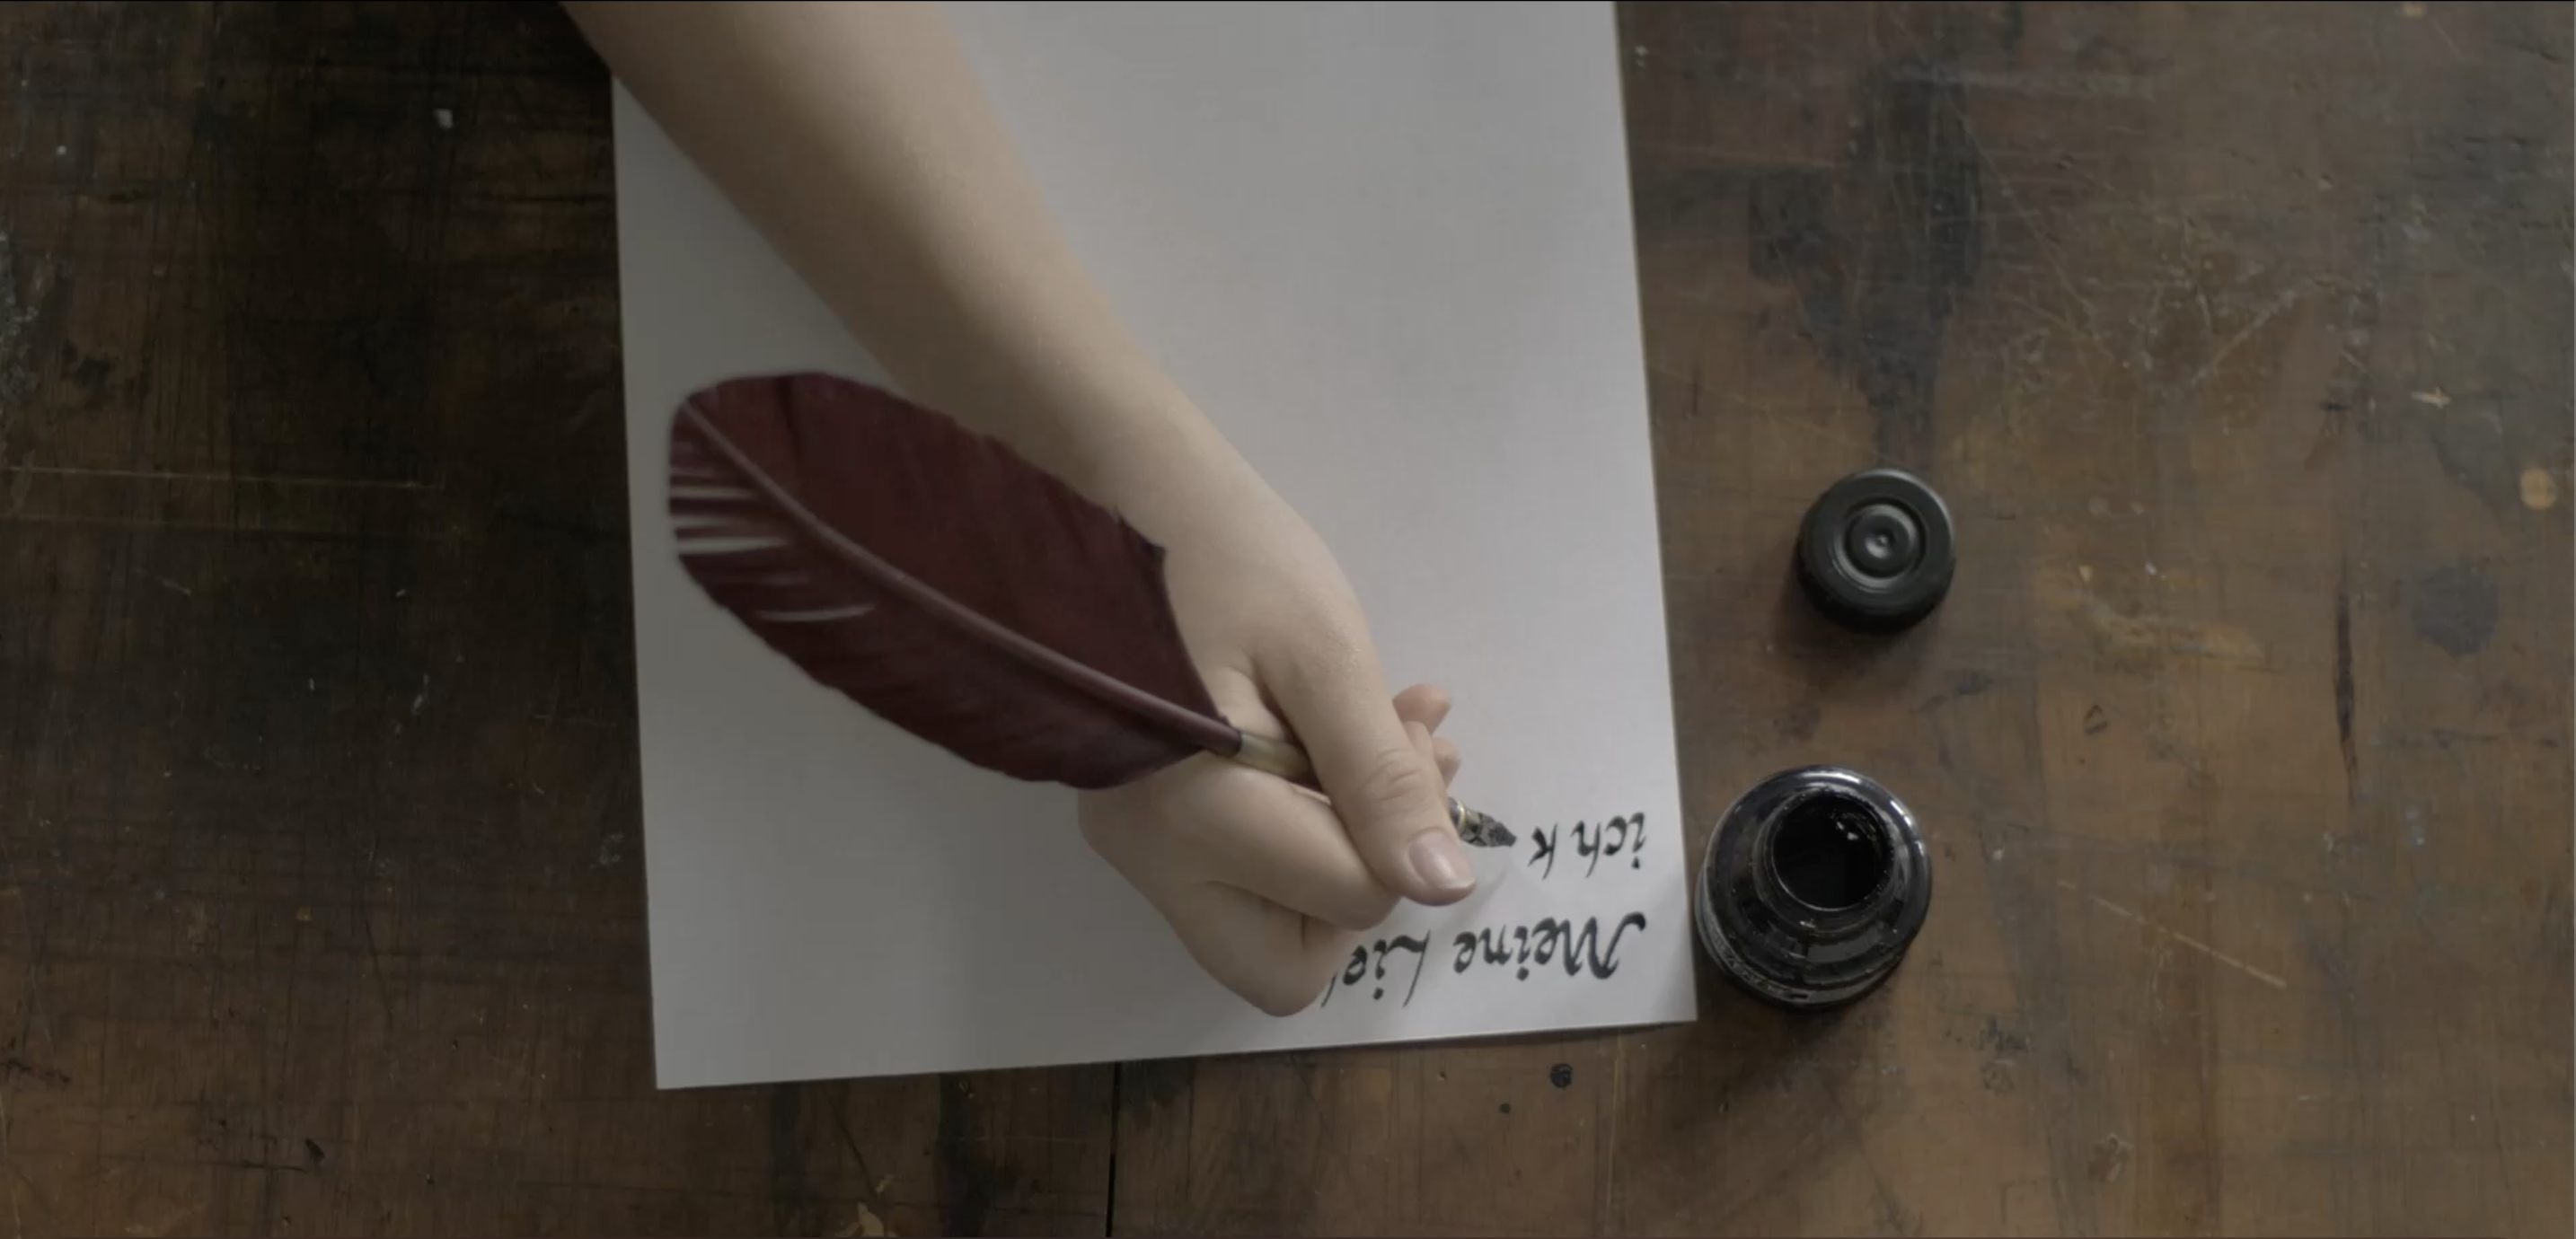 Meine Lie
ich k